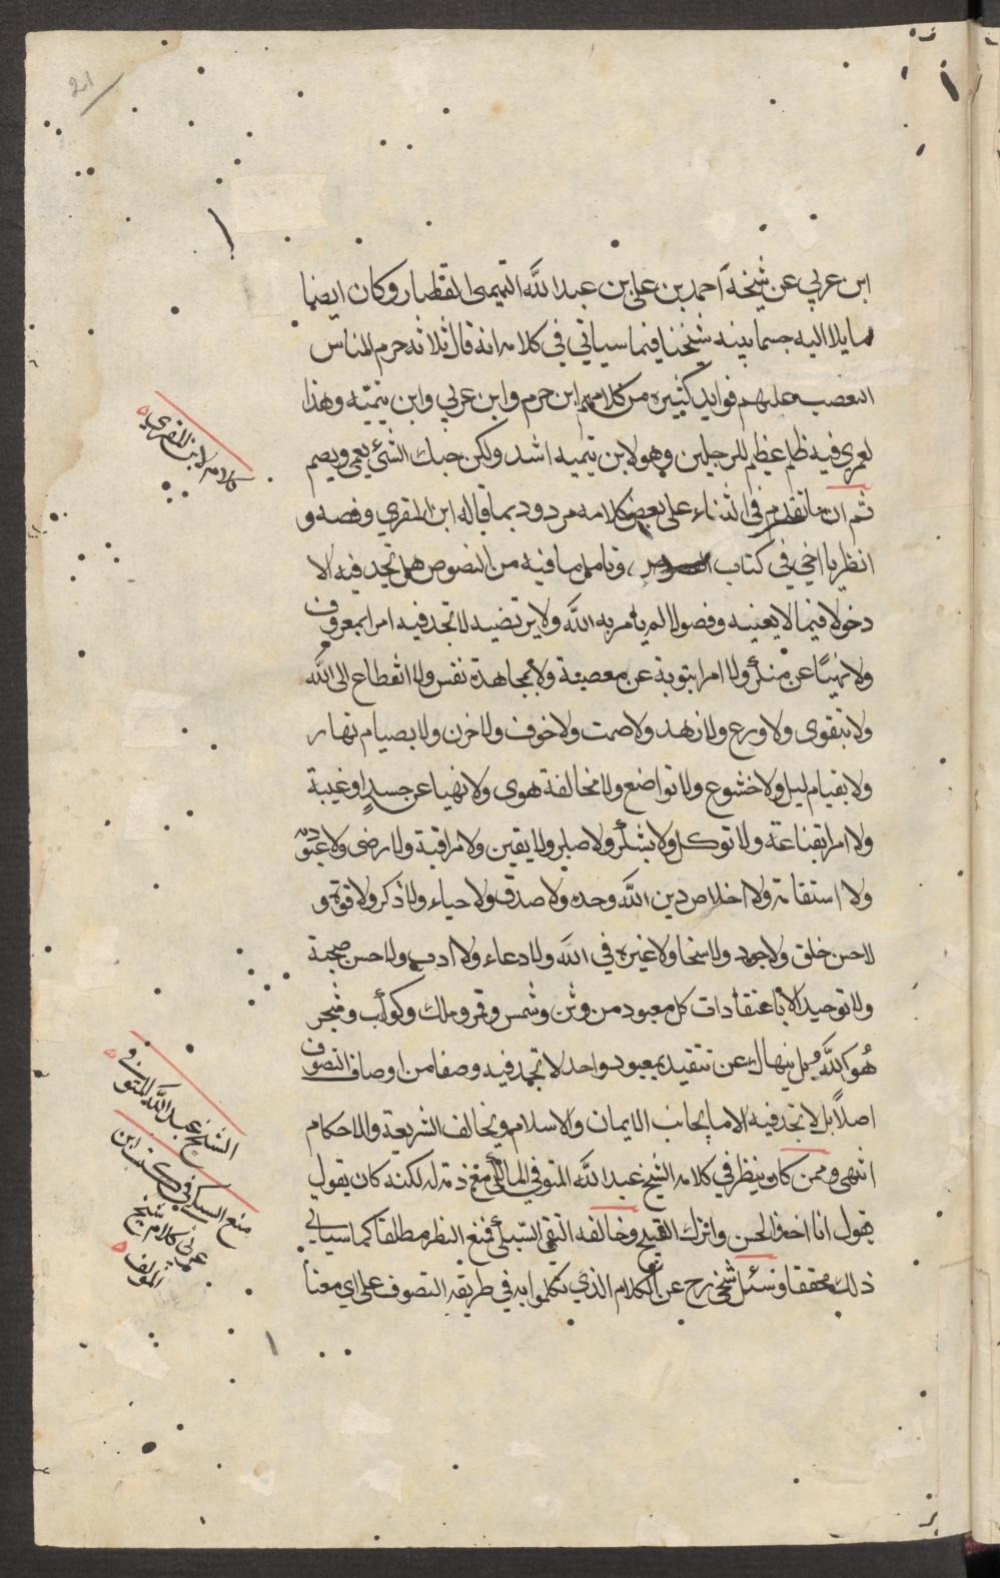 ابن عربي عن شيخه احمد بن علي بن عبد الله التميمي القطبار وكان ايضا
مايلا اليه حسما بينه شيخنا فيما سياتي في كلامه انه قال ثلاثه حرم الناس
التعصب عليهم فوايد كثيره من كلامهم ابن حزم وابن عربي وابن تيميه وهذا
لعمري فيه ظلم عظيم للرجلين وهو لابن تيميه اشد ولكن حبك الشئ يعمي ويصم
ثم ان ما تقدم من الثناء على بعض كلامه مردود بما قاله ابن المقري وفصه و
انظر يا اخي في كتاب الفصوص وتامل ما فيه من النصوص هل تجد فيه الا
دخولا فيما لا يعنيه وفصولا لم يامر به الله ولا يرتضيه لا تجد فيه امرا بمعروف
ولا نهيًا عن منكر ولا امرا بتوبة عن معصية ولا بمجاهدة نفس ولا انقطاع الى الله
ولا بتقوى ولا ورع ولا زهد ولا صمت ولا خوف ولا حزن ولا بصيام نهار
ولا بقيام ليل ولا خشوع ولا تواضع ولا مخالفة هوى ولا نهيا عن حسد او غيبة
ولا امرا بقناعة ولا توكل ولا بشكر ولا صبر ولا يقين ولا مراقبة ولا رضى ولا عبودية
ولا استقامة ولا اخلاص دين الله وحده ولا صدق ولا حياء ولا ذكر ولا فتوة و
لا حسن خلق ولا جود ولا سخا ولا غيره في الله ولا دعاء ولا ادب ولا حسن صحبة
ولا توحيد الا باعتقادات كل معبود من وثن وشمس وقمر وملك وكوكب وشجر
هُو الله وبل ينهاك عن تتقيد بمعبود واحد لا تجد فيه وصفا من اوصاف التصوف
اصلاً بل لا تجد فيه الا ما يجانب الايمان والاسلام ويخالف الشريعة والاحكام
انتهى وممن كان ينظر في كلامه الشيخ عبد الله المتوفي المالكي مع ذمه له لكنه كان يقول
يقول انا اخذ الحسن واترك القبيح وخالفه التقي السبكي فمنع النظر مطلقا كما سياتي
ذلك محققا وسئل شيخي رح عن الكلام الذي تكلموا به في طريقه التصوف على اي معنا
كلامه لابن المقري
الشيخ عبد الله المتوفي
منع السبكي في كتب ابن
عربي كلام شيخ
المولف